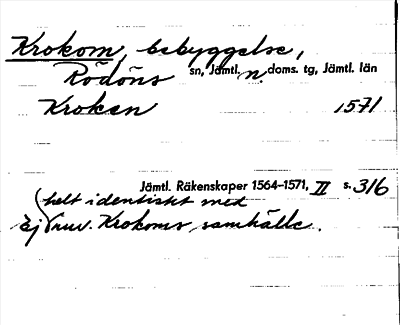 Krokom, bebyggelse,
Rödöns sn, Jämtl. n. doms. tg, Jämtl. län
Kroken 1571
Jämtl. Räkenskaper 1564-1571, II s. 316
(helt identiskt med
Ej nuv. Krokoms samhälle.